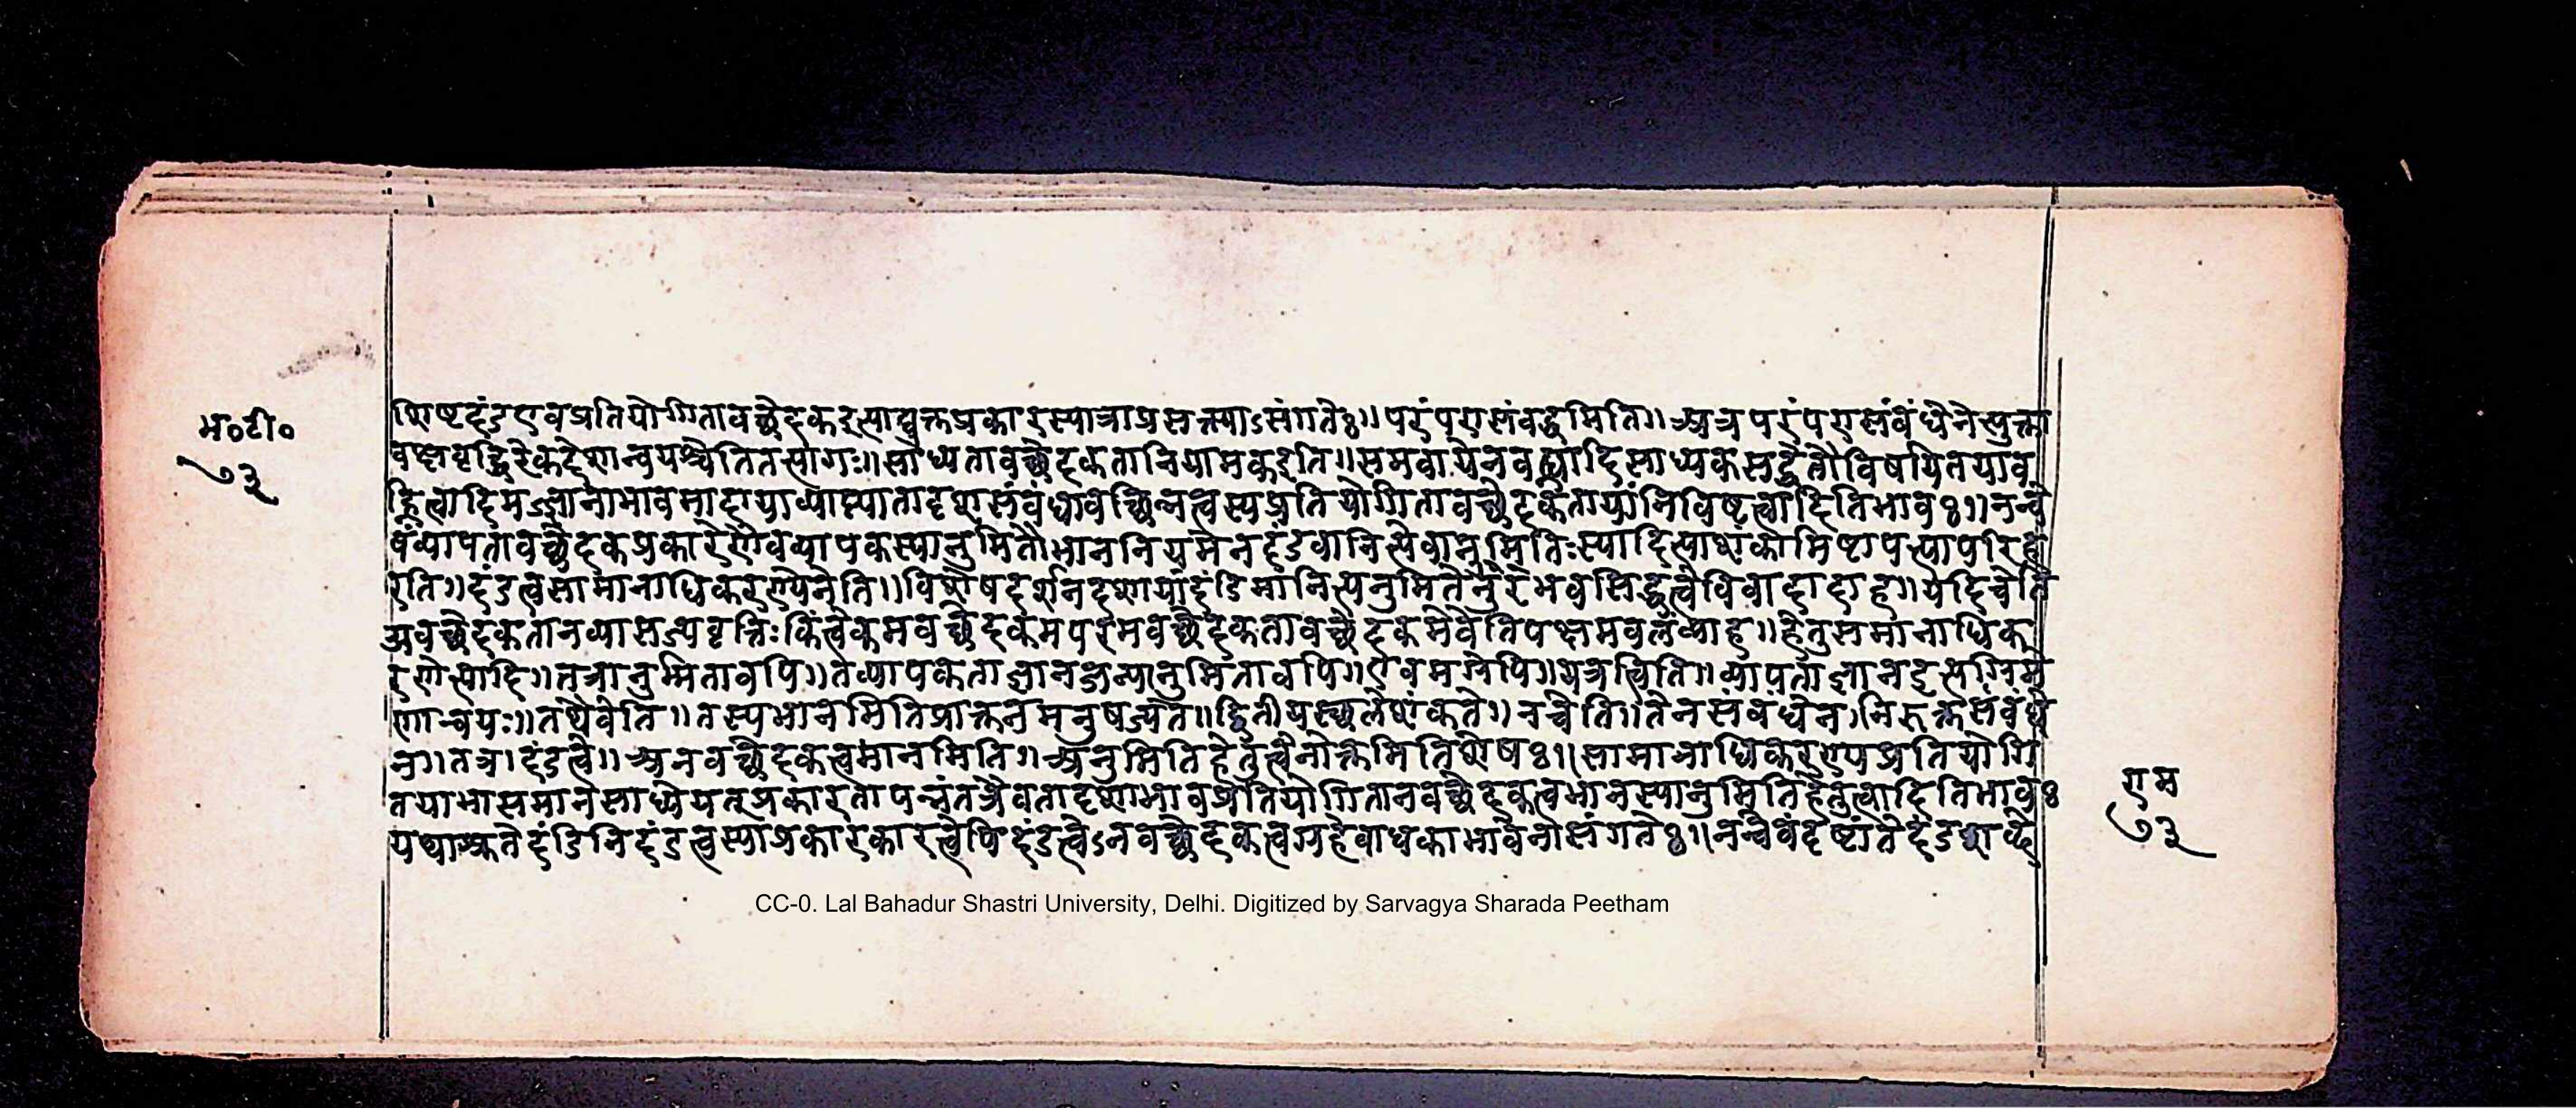 शिष्टदंडएवप्रतियोगितावच्छेदकइत्याद्युक्तप्रकारस्यात्राप्रसक्त्याऽसंगतेः॥परंपरासंबद्धमिति॥अत्रपरंपरासंबंधेनेत्युक्ता
म॰टी॰
७३
वेकदेशान्वयश्चेतितत्त्यागः॥साध्यतावच्छेदकतानियामकइति॥समवायेनवह्न्यादिसाध्यकसद्धेतौविषयितयाव
ह्नित्वादिमज्ज्ञानाभावमादायाव्याप्त्यातादृशसंबंधावच्छिन्नत्वस्यप्रतियोगितावच्छेदकतायांनिविष्टत्वादितिभावः॥नन्वे
वंव्यापतावच्छेदकप्रकारेणैवव्यापकस्यानुमितौभाननियमेनदंडवानित्येवानुमितिःस्यादित्याशंकामिष्टापत्त्यापरिह
रति॥दंडत्वसामानाधिकरण्येनेति॥विशेषदर्शनदशायांदंडिमानित्यनुमितेनुरभवसिद्धत्वेविवादादाह॥यदिचेति
अवच्छेदकतानव्यासज्यवृत्तिःकिंत्वेकमवच्छेदकमपरमवच्छेदकतावच्छेदकमेवेतिपक्षमवलंब्याह॥हेतुसमानाधिक
रणेत्यादि॥तत्रानुमितावपि॥तव्यापकताज्ञानजन्यानुमितावपि॥एवमग्रेपि॥यत्रत्विति॥व्यापताज्ञानइत्यग्रिमे
णान्वयः॥तथैवेति॥तस्यभानमितिप्राक्तनमनुषज्यते॥द्वितीयस्थलेशंकते॥नचेति॥तेनसंबंधेन।निरुक्तसंबंधे
न॥तत्र।दंडत्वे॥अनवच्छेदकत्वमानमिति॥अनुमितिहेतुत्वेनोक्तमितिशेषः॥सामानाधिकरण्यप्रतियोगि
तयाभासमानेसाध्येयत्प्रकारतापन्नंतत्रैवतादृशाभावप्रतियोगितानवच्छेदकत्वभानस्यानुमितिहेतुत्वादितिभावः
यथाश्रुतेदंडिनिदंडत्वस्याप्रकारकारत्वेपिदंडत्वेऽनवच्छेदकत्वग्रहेबाधकाभावेनासंगतेः॥नन्वेवंदृष्टांतेदंड
राम
७३
CC-0. Lal Bahadur Shastri University, Delhi. Digitized by Sarvagya Sharada Peetham